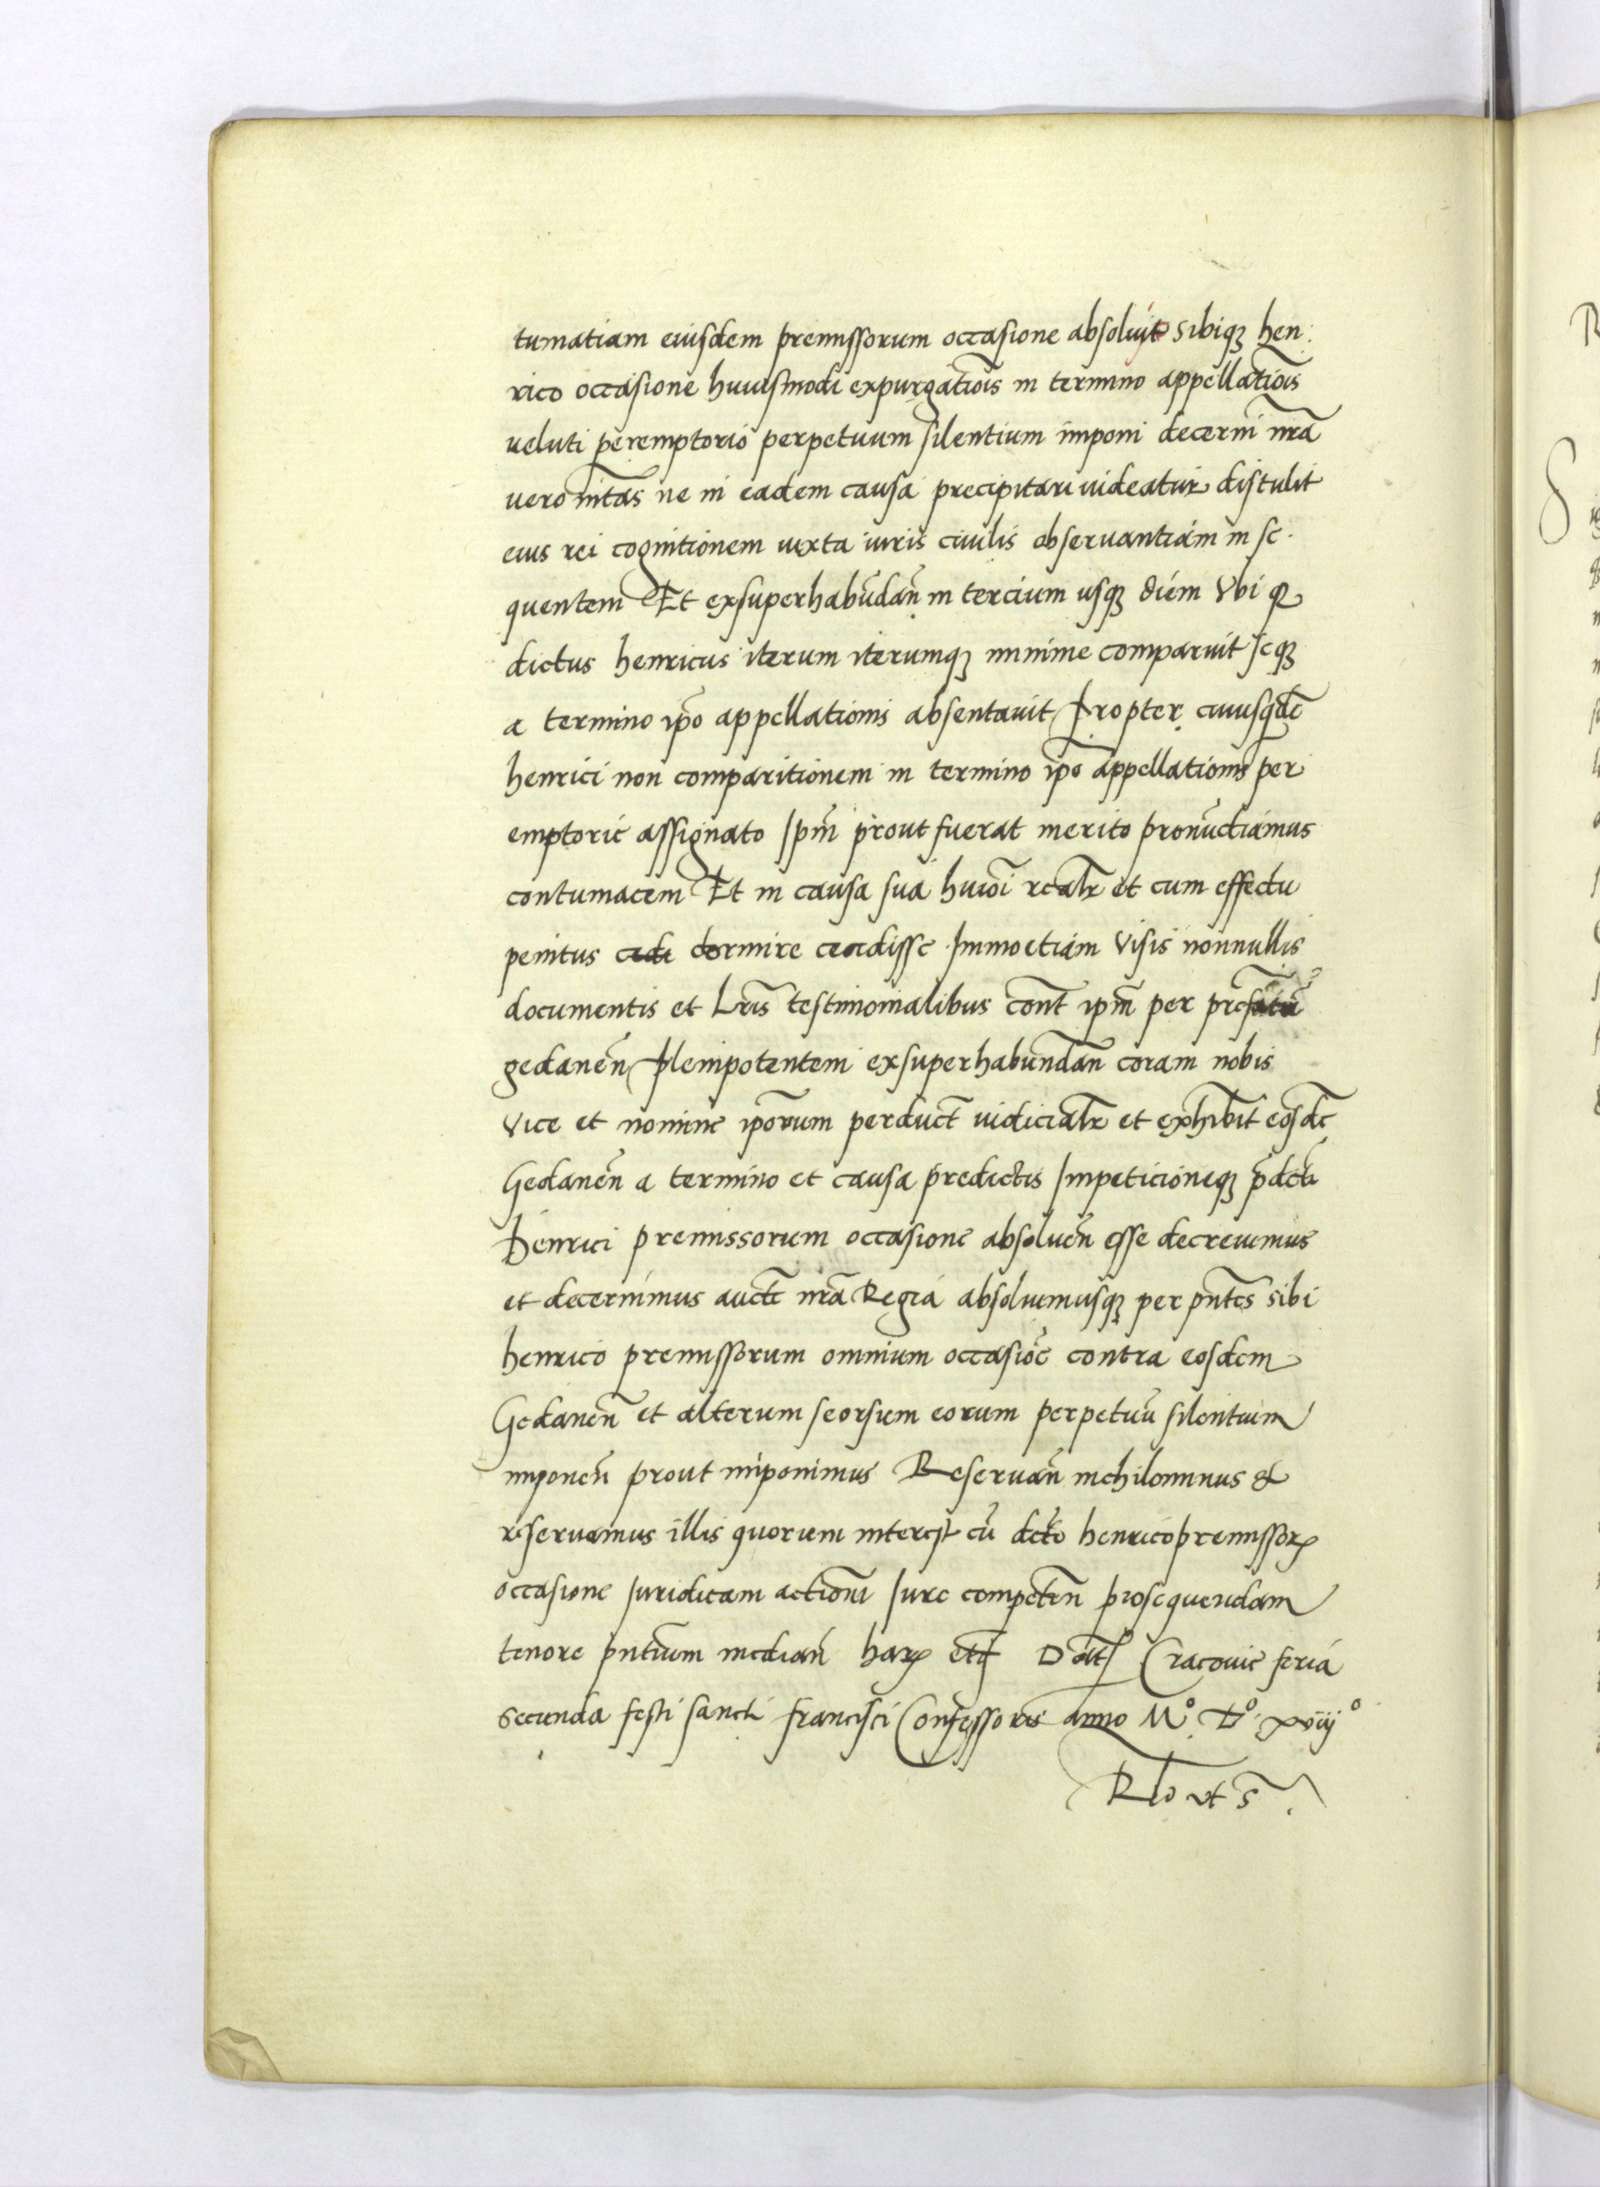 tumatiam eiusdem premissorum occasione absoluit sibiqꝫ hen
rico occasione huiusmodi expurgac̄iois in termino appellatiōis
veluti peremptorio perpetuum silentium imponi decerni nr̄a
vero m̄tas ne in eadem causa precipitari videatur distulit
eius rei cognitionem iuxta iuris ciuilis obseruantiam in se
quentem Et exsuperhabūdan̄ in tercium usqꝫ diem Vbi qꝫ
dictus henricus iterum iterumqꝫ minime comparuit seqꝫ
a termino ip̄o appellationis absentauit Propter cuiusqdē
henrici non comparitionem in termino ip̄o appellationis per
emptorie assignato Ip̄m prout fuerat merito pronūctiamus
contumacem Et in causa sua huiōi realr̄ et cum effectu
penitus cedi dormire cecidisse Immoetiam Visis nonnullis
documentis et Lr̄is testimonialibus cont̄ ip̄m per
gedanen̄ Plenipotentem exsuperhabundan̄ coram nobis
Vice et nomine ip̄orum perduct̄ iudicialr̄ et exhibit̄ eosdē
Gedanen̄ a termino et causa predictis Impeticioneqꝫ p̄dcti
Henrici premissorum occasione absoluen̄ esse decreuimus
et decernimus auctē nr̄a Regia absoluimusqꝫ per pn̄tes sibi
henrico premissorum omnium occasiōe contra eosdem
Gedanen̄ et alterum seorsum eorum perpetuū silentium
imponen̄ prout imponimus Reseruan̄ nichilominus &
reseruamus illis quorum interest cū dcto henrico premissorꝝ
occasione Iuridicam actionē Iure competen̄ prosequendam
tenore pn̄tium median̄ harꝝ etc̄ Dat̄ Cracouie feria
secunda festi sancti francisci Confessoris anno M° D° xviij°
Rlo vt s̄